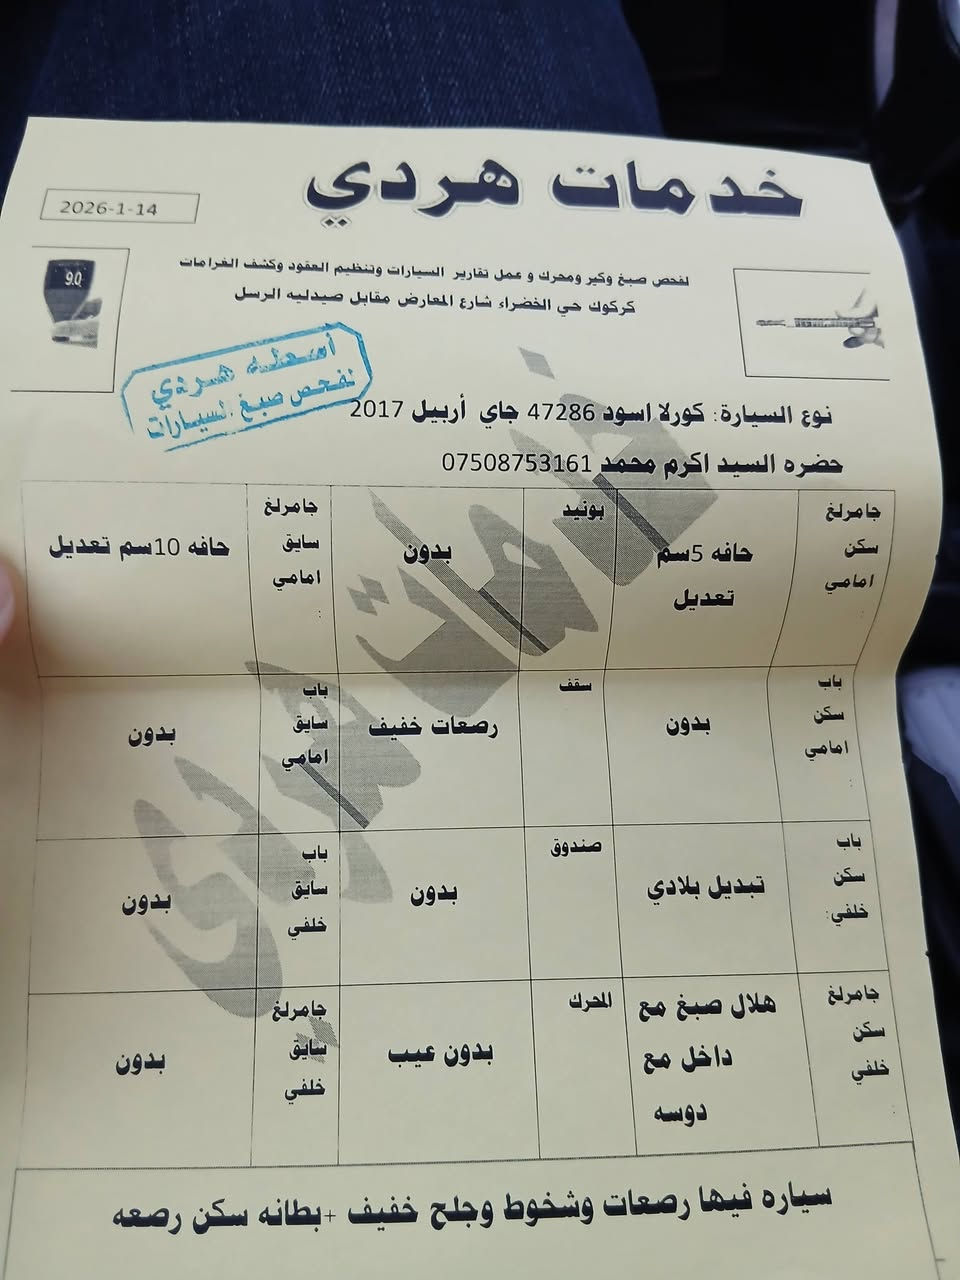 خدمات هردي
2026-1-14
9.0
لفحص صبغ وكير ومحرك و عمل تقارير السيارات وتنظيم العقود وكشف الغرامات
كركوك حي الخضراء شارع المعارض مقابل صيدليه الرسل
أسعله هردي
لفحص صبغ السيارات
نوع السيارة: كورلا اسود 47286 جاي أربيل 2017
حضره السيد اكرم محمد 07508753161
جامرلغ
سكن
امامي
حافه 5سم
تعديل
بونيد
بدون
جامرلغ
سايق
امامي
:
حافه 10سم تعديل
باب
سكن
امامي
:
بدون
سقف
رصعات خفيف
باب
سايق
امامي
بدون
باب
سكن
خلفي:
تبديل بلادي
صندوق
بدون
باب
سايق
خلفي
بدون
جامرلغ
سكن
خلفي
:
هلال صبغ مع
داخل مع
دوسه
المحرك
بدون عيب
جامرلغ
سايق
خلفي
بدون
سياره فيها رصعات وشخوط وجلح خفيف +بطانه سكن رصعه
خدمات هردي